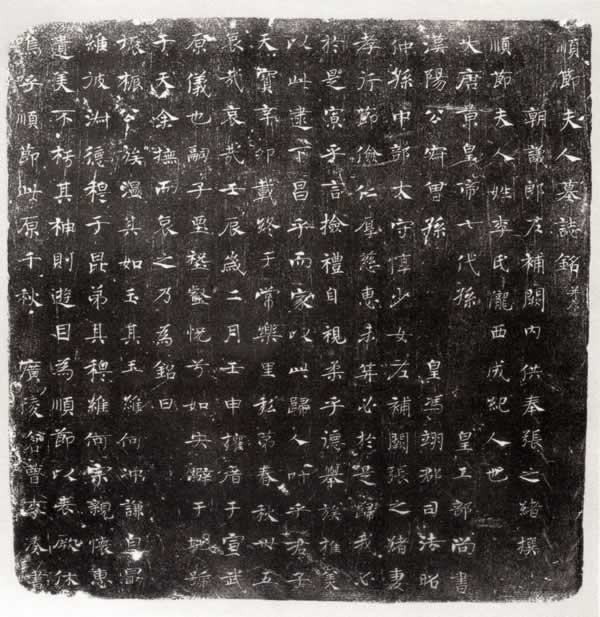 順節夫人墓誌銘
朝議郎左補闕內供奉張之緒撰
順節夫人姓李氏隴西成紀人也
大唐皇帝七代孫 皇工部尚書
漢陽公曾孫 皇馮翊郡司法昭
仲孫中部太守惇少女左補闕張之緒妻
孝行節儉仁厚慈惠未笄必於是歸我必
於是寡乎言撿禮自視柔乎德舉族推美
以此逮下昌乎而家以此歸人叶乎君子
天寶辛卯載終于常樂里私第春秋卅五
哀哉哀哉壬辰歲二月壬申權厝于宣武
原儀也嗣子怳兮如失擗于地踊
于天余撫而哀之乃為銘曰
振振公族溫其如玉其玉維何沖謙自勗
維彼淑德穆于昆弟其穆維何宗親懷惠
遺美不朽其神則遊目為順節以表厥休
嗚乎順節此原千秋 廣陵曹李湊書